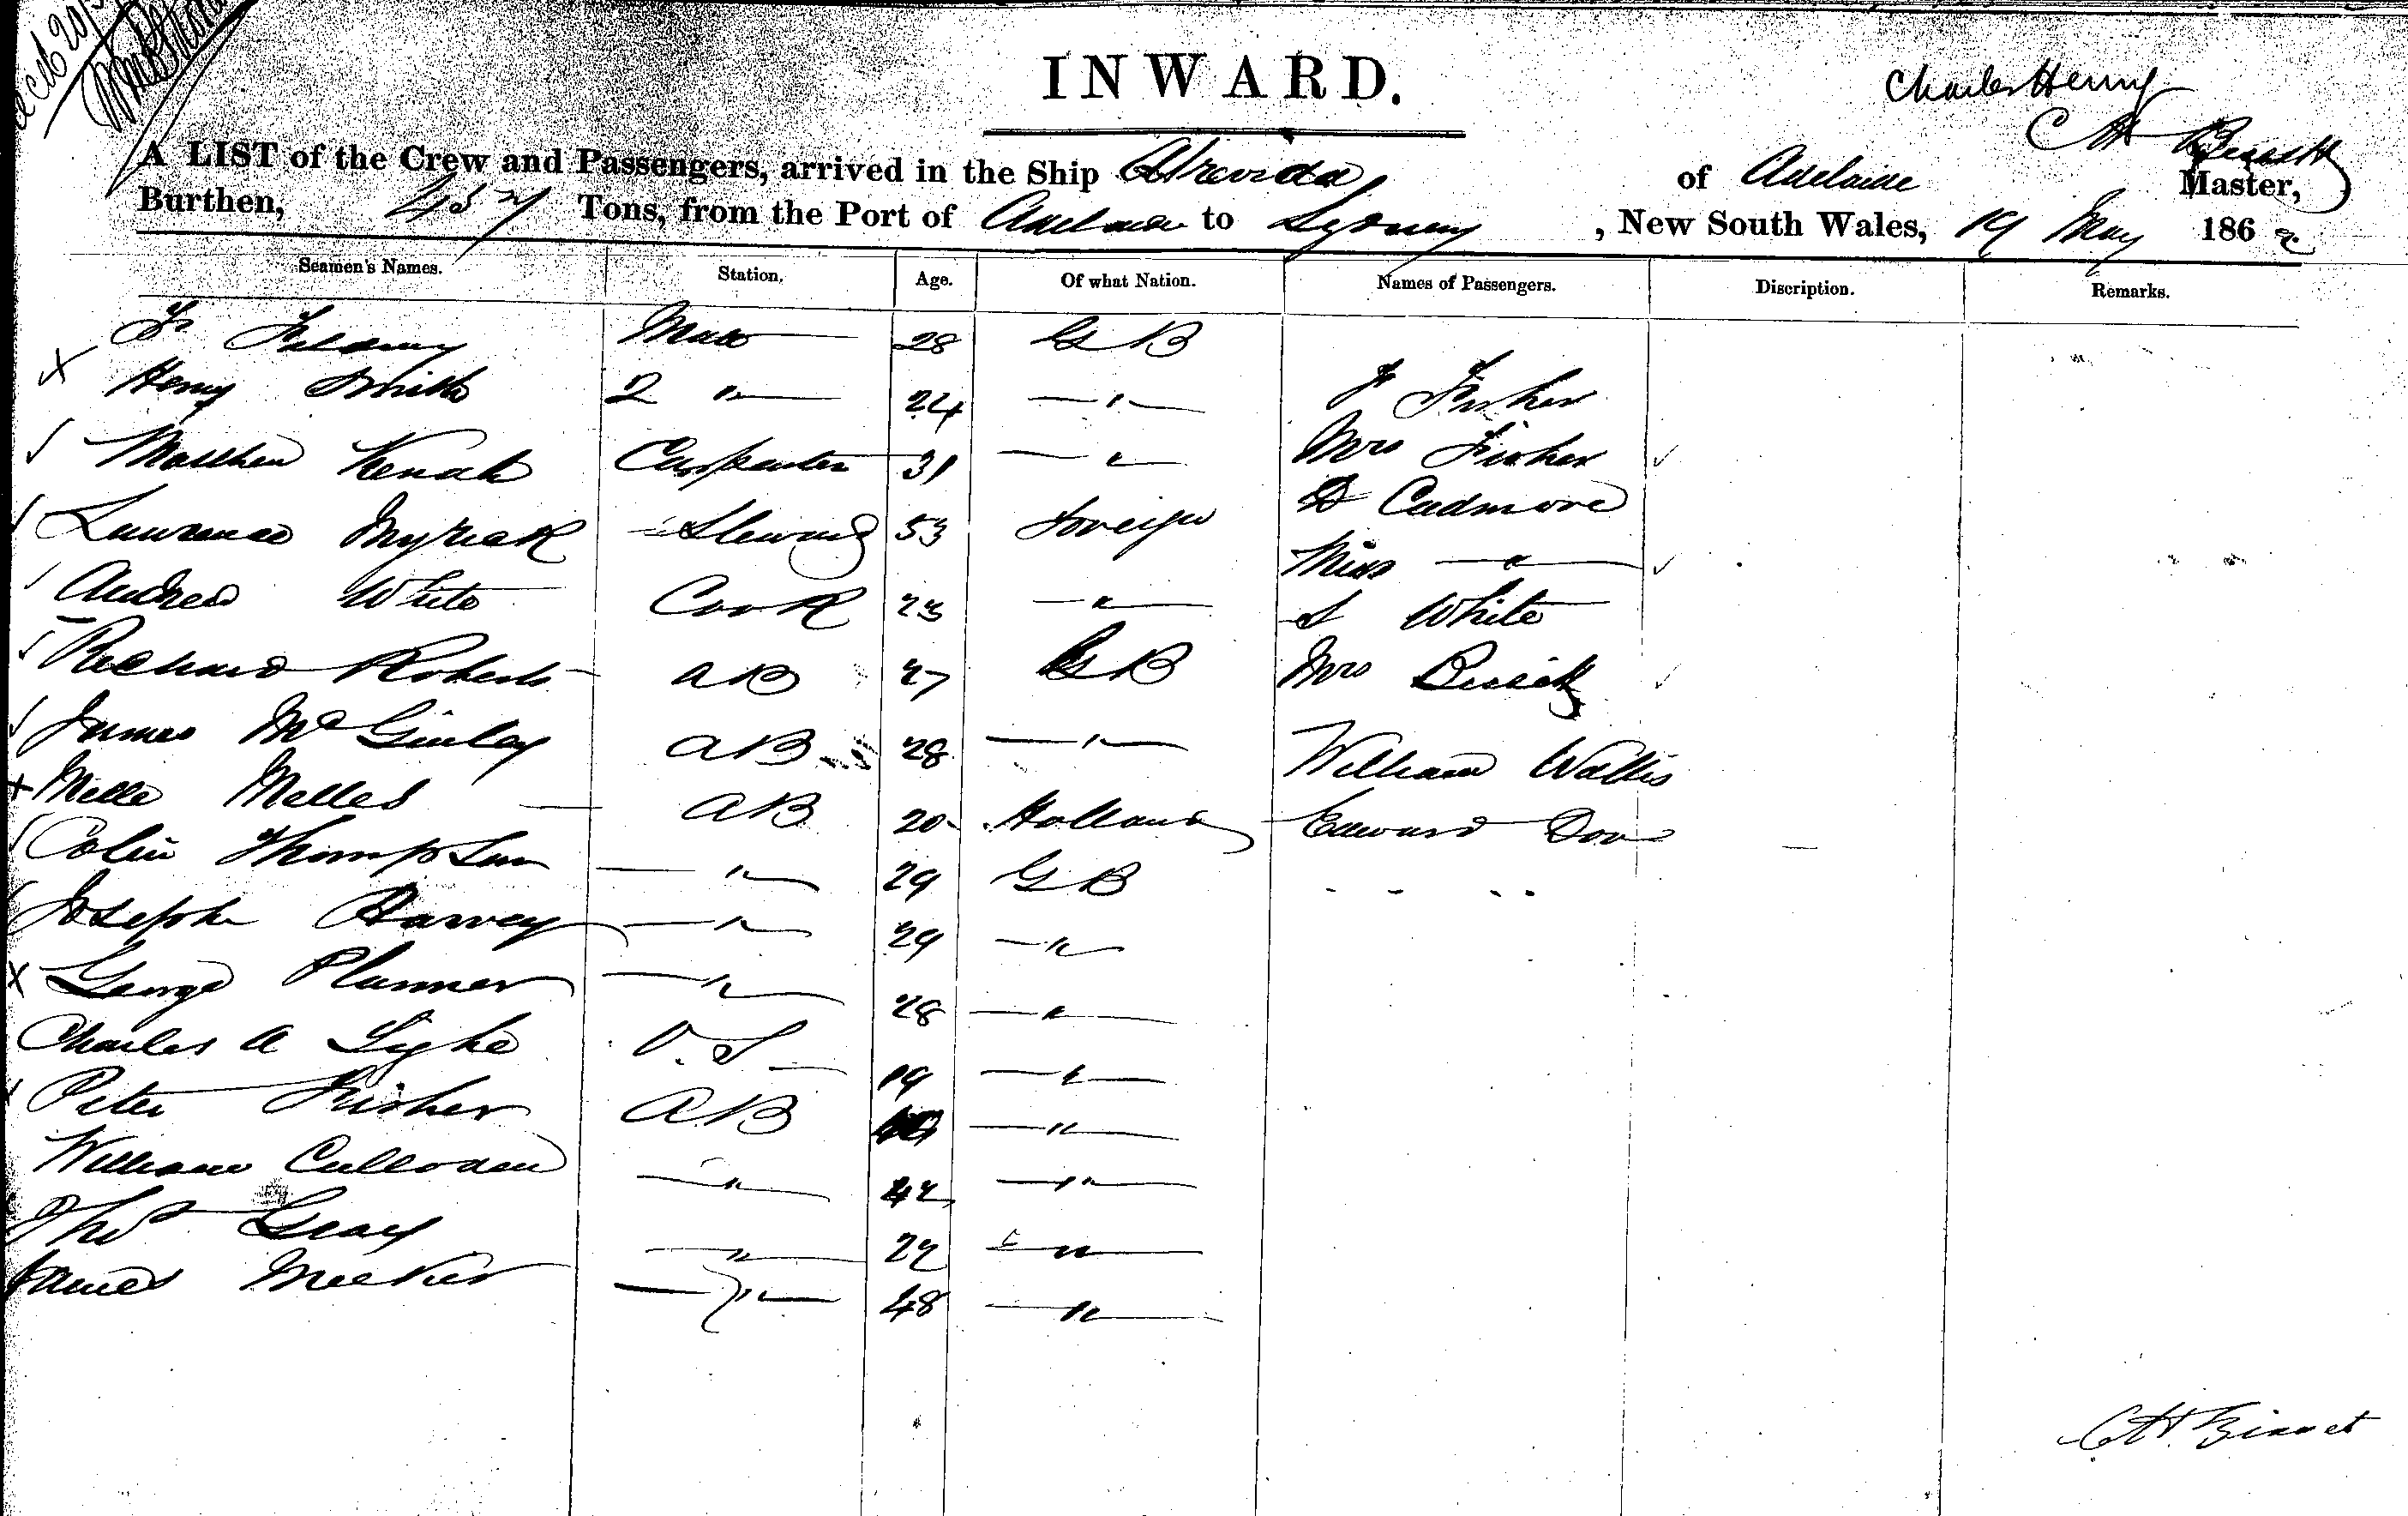 INWARD.
Charles Henry
C H Bissett
A LIST of the Crew and Passengers, arrived in the Ship of Adelaide Master,
Burthen, 457 Tons, from the Port of Adelaide to Sydney, New South Wales, 19 May 186
Seamen's Names. Station. Age. Of what Nation. Names of Passengers. Discription. Remarks.
Mate 28 G B
x Henry Smith 2 " 24 " F Fisher
✓ Matthew Carpenter 31 " Mrs Fisher ✓
✓ Lawrence Steward 53 Foreign D Cadmore
✓ Andrew White Cook 23 " Miss " ✓
S White
✓ Richard Roberts A B 27 G B Mrs ✓
✓ James McGinley A B 28 " William Wallis
x Melle Melles A B 20 Holland Edward
✓ Colin Thompson " 29 G B
✓ Joseph Harvey " 29 "
x George Plummer " 28 "
Charles A Lyghe O.S 19 "
✓ Peter Fisher A B "
William Culloden " 42 "
Thos Gray " 22 "
James Meeker " 48 "
C H Bisset